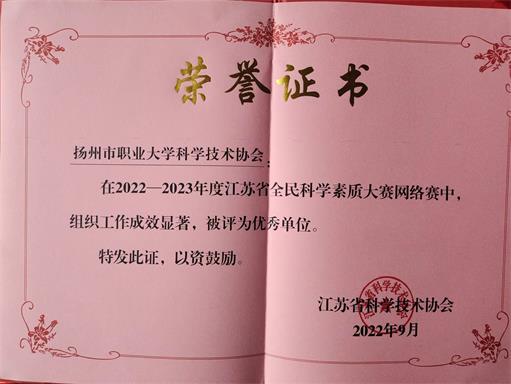 荣誉证书
扬州市职业大学科学技术协会：
在2022—2023年度江苏省全民科学素质大赛网络赛中，
组织工作成效显著，被评为优秀单位。
特发此证，以资鼓励。
江苏省科学技术协会
2022年9月